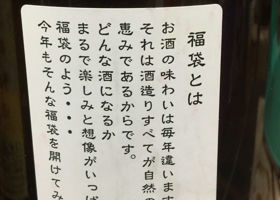 福袋とは
お酒の味わいは毎年違います
それは酒造りすべてが自然の
恵みであるからです。
どんな酒になるか
まるで楽しみと想像がいっぱ
福袋のよう・・・
今年もそんな福袋を開けてみ